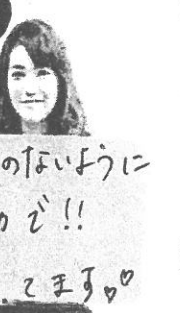 のないように
で!!
てます♡♡